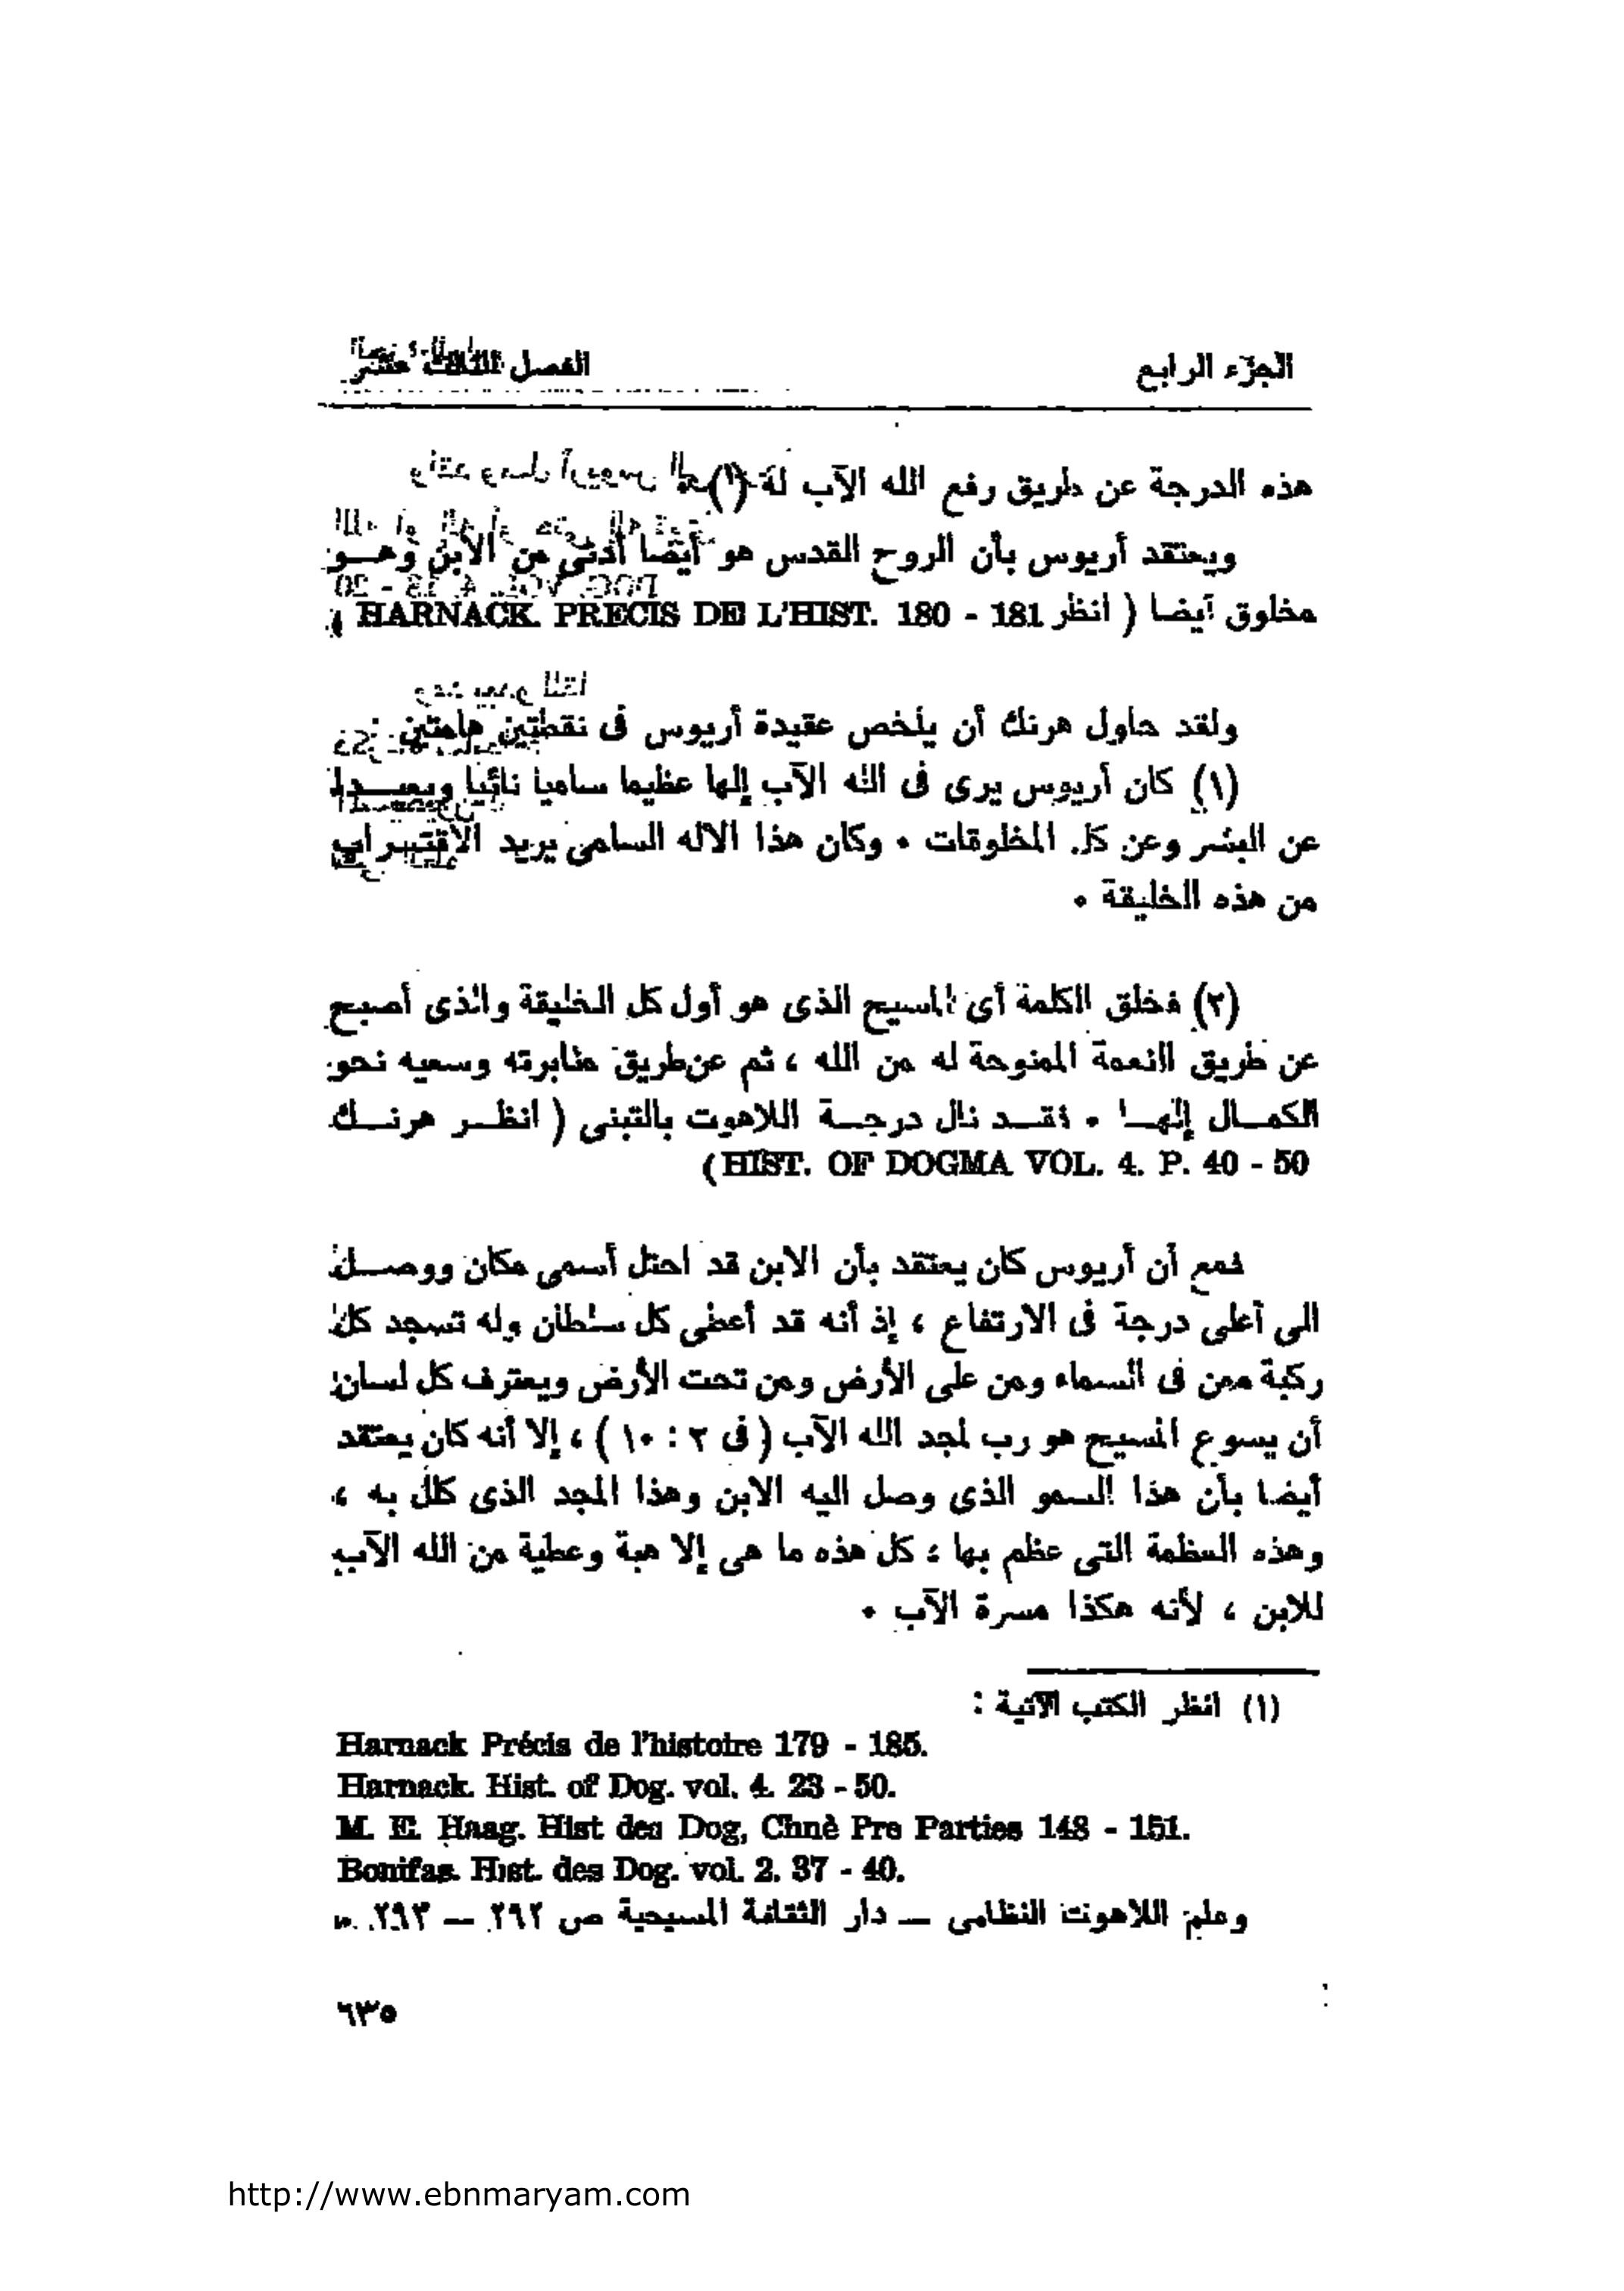 الجزء الرابع
الفصل الثالث عشر
هذه الدرجة عن طريق رفع الله الآب له (١)
ويعتقد أريوس بأن الروح القدس هو أيضا أدنى من الابن وهـو
مخلوق أيضا ( انظر HARNACK. PRECIS DE L'HIST. 180 - 181 )
ولقد حاول هرنك أن يلخص عقيدة أريوس فى نقطتين هامتين :
(١) كان أريوس يرى فى الله الآب إلها عظيما ساميا نائيا وبعيـدا
عن البشر وعن كل المخلوقات ٠ وكان هذا الاله السامى يريد الاقتـراب
من هذه الخليقة ٠
(٢) فخلق الكلمة أى المسيح الذى هو أول كل الخليقة والذى أصبح
عن طريق النعمة الممنوحة له من الله ، ثم عن طريق مثابرته وسعيه نحو
الكمـال إلهـا ٠ فقـد نال درجـة اللاهوت بالتبنى ( انظـر هرنـك
HIST. OF DOGMA VOL. 4. P. 40 - 50)
فمع أن أريوس كان يعتقد بأن الابن قد احتل أسمى مكان ووصـل
الى أعلى درجة فى الارتفاع ، إذ أنه قد أعطى كل سلطان وله تسجد كل
ركبة ممن فى السماء ومن على الأرض ومن تحت الأرض ويعترف كل لسان
أن يسوع المسيح هو رب لمجد الله الآب ( فى ٢ : ١٠ ) ، إلا أنه كان يعتقد
أيضا بأن هذا السمو الذى وصل اليه الابن وهذا المجد الذى كلل به ،
وهذه العظمة التى عظم بها ، كل هذه ما هى إلا هبة وعطية من الله الآب
للابن ، لأنه هكذا مسرة الآب ٠
(١) انظر الكتب الآتية :
Harnack Précis de l'histoire 179 - 185.
Harnack. Hist. of Dog. vol. 4. 23 - 50.
M. E. Haag. Hist des Dog, Chnè Pre Parties 148 - 151.
Bonifas. Hist. des Dog. vol. 2. 37 - 40.
وعلم اللاهوت النظامى — دار الثقافة المسيحية ص ٢٩٢ — ٢٩٣ .
٦٣٥
http://www.ebnmaryam.com